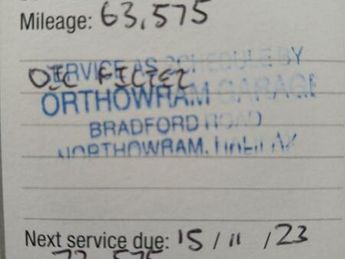 Mileage: 63,575
SERVICE AS SCHEDULE BY
OIL FILTER
ORTHOWRAM GARAGE
BRADFORD ROAD
NORTHOWRAM, HALIFAX
Next service due: 15 / 11 / 23